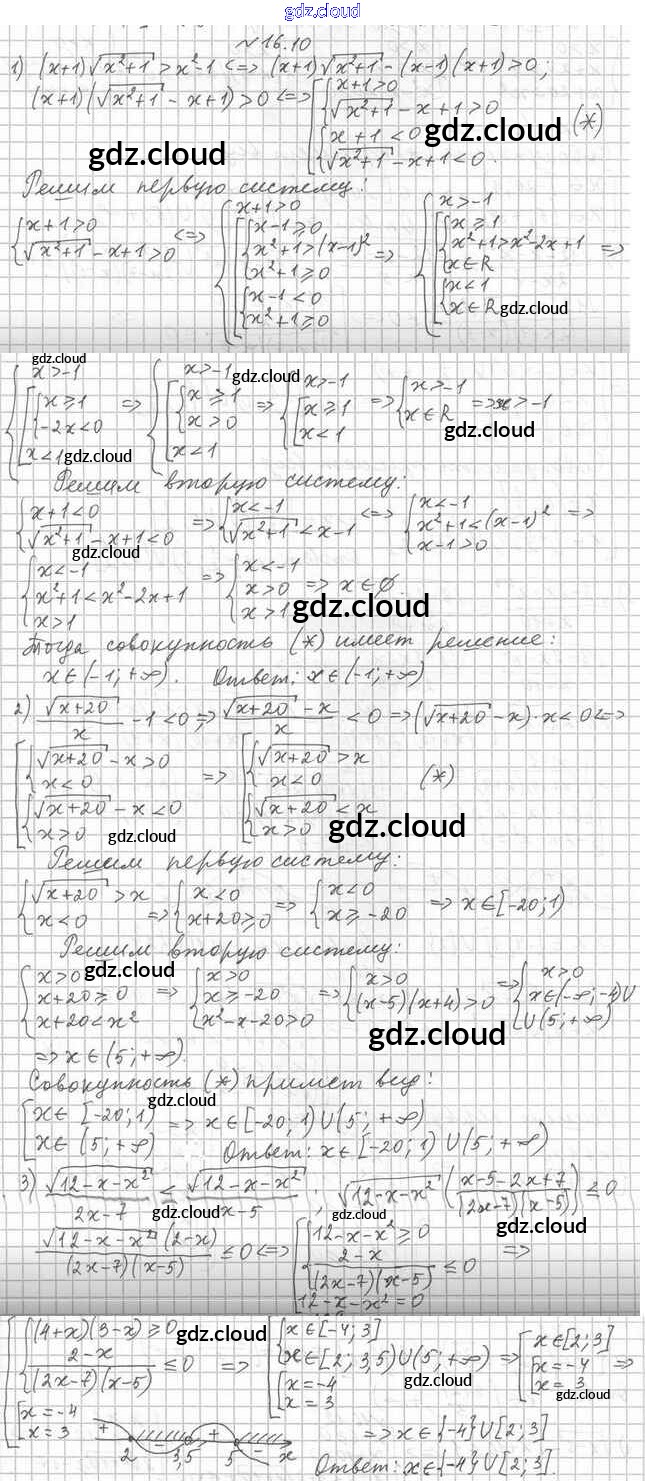 gdz.cloud
№16.10
1) (x+1)√(x²+1) > x²-1 <=> (x+1)√(x²+1) - (x-1)(x+1) > 0;
(x+1)(√(x²+1) - x+1) > 0 <=> [ { x+1>0 ; √(x²+1) - x+1>0 ; { x+1<0 ; √(x²+1) - x+1<0. (*)
gdz.cloud
gdz.cloud
Решим первую систему:
{ x+1>0 ; √(x²+1) - x+1>0 <=> { x+1>0 ; [ { x-1≥0 ; x²+1>(x-1)² ; x²+1≥0 ; { x-1<0 ; x²+1≥0 => { x>-1 ; [ { x≥1 ; x²+1>x²-2x+1 ; x∈R ; { x<1 ; x∈R =>
gdz.cloud
gdz.cloud
{ x>-1 ; [ { x≥1 ; -2x<0 ; x<1 => { x>-1 ; [ { x≥1 ; x>0 ; x<1 => { x>-1 ; [ x≥1 ; x<1 => { x>-1 ; x∈R => x>-1
gdz.cloud
gdz.cloud
gdz.cloud
Решим вторую систему:
{ x+1<0 ; √(x²+1) - x+1<0 => { x<-1 ; √(x²+1) < x-1 <=> { x<-1 ; x²+1<(x-1)² ; x-1>0 =>
gdz.cloud
{ x<-1 ; x²+1<x²-2x+1 ; x>1 => { x<-1 ; x>0 ; x>1 => x∈∅.
gdz.cloud
Тогда совокупность (*) имеет решение:
x∈(-1; +∞). Ответ: x∈(-1; +∞)
2) √(x+20)/x - 1<0 => (√(x+20) - x)/x < 0 => (√(x+20) - x)·x<0 <=>
[ { √(x+20) - x>0 ; x<0 ; { √(x+20) - x<0 ; x>0 => [ { √(x+20) > x ; x<0 ; { √(x+20) < x ; x>0 (*)
gdz.cloud
gdz.cloud
Решим первую систему:
{ √(x+20) > x ; x<0 => { x<0 ; x+20≥0 => { x<0 ; x≥-20 => x∈[-20; 1)
Решим вторую систему:
gdz.cloud
{ x>0 ; x+20≥0 ; x+20<x² => { x>0 ; x≥-20 ; x²-x-20>0 => { x>0 ; (x-5)(x+4)>0 => { x>0 ; x∈(-∞; -4)∪ ∪(5; +∞)
gdz.cloud
=> x∈(5; +∞).
Совокупность (*) примет вид:
gdz.cloud
[ x∈[-20; 1) ; x∈(5; +∞) => x∈[-20; 1)∪(5; +∞)
Ответ: x∈[-20; 1)∪(5; +∞)
3) √(12-x-x²)/(2x-7) ≤ √(12-x-x²)/(x-5) ; √(12-x-x²)((x-5-2x+7)/((2x-7)(x-5))) ≤ 0
gdz.cloud
gdz.cloud
gdz.cloud
√(12-x-x²)(2-x)/((2x-7)(x-5)) ≤ 0 <=> [ { 12-x-x²≥0 ; (2-x)/((2x-7)(x-5)) ≤ 0 ; 12-x-x²=0 =>
[ { (4+x)(3-x)≥0 ; (2-x)/((2x-7)(x-5)) ≤ 0 ; [ x=-4 ; x=3 => [ { x∈[-4; 3] ; x∈[2; 3,5)∪(5; +∞) ; [ x=-4 ; x=3 => [ x∈[2; 3] ; [ x=-4 ; x=3 =>
gdz.cloud
gdz.cloud
gdz.cloud
+ - + -
2 3,5 5 x
=> x∈{-4}∪[2; 3]
Ответ: x∈{-4}∪[2; 3].